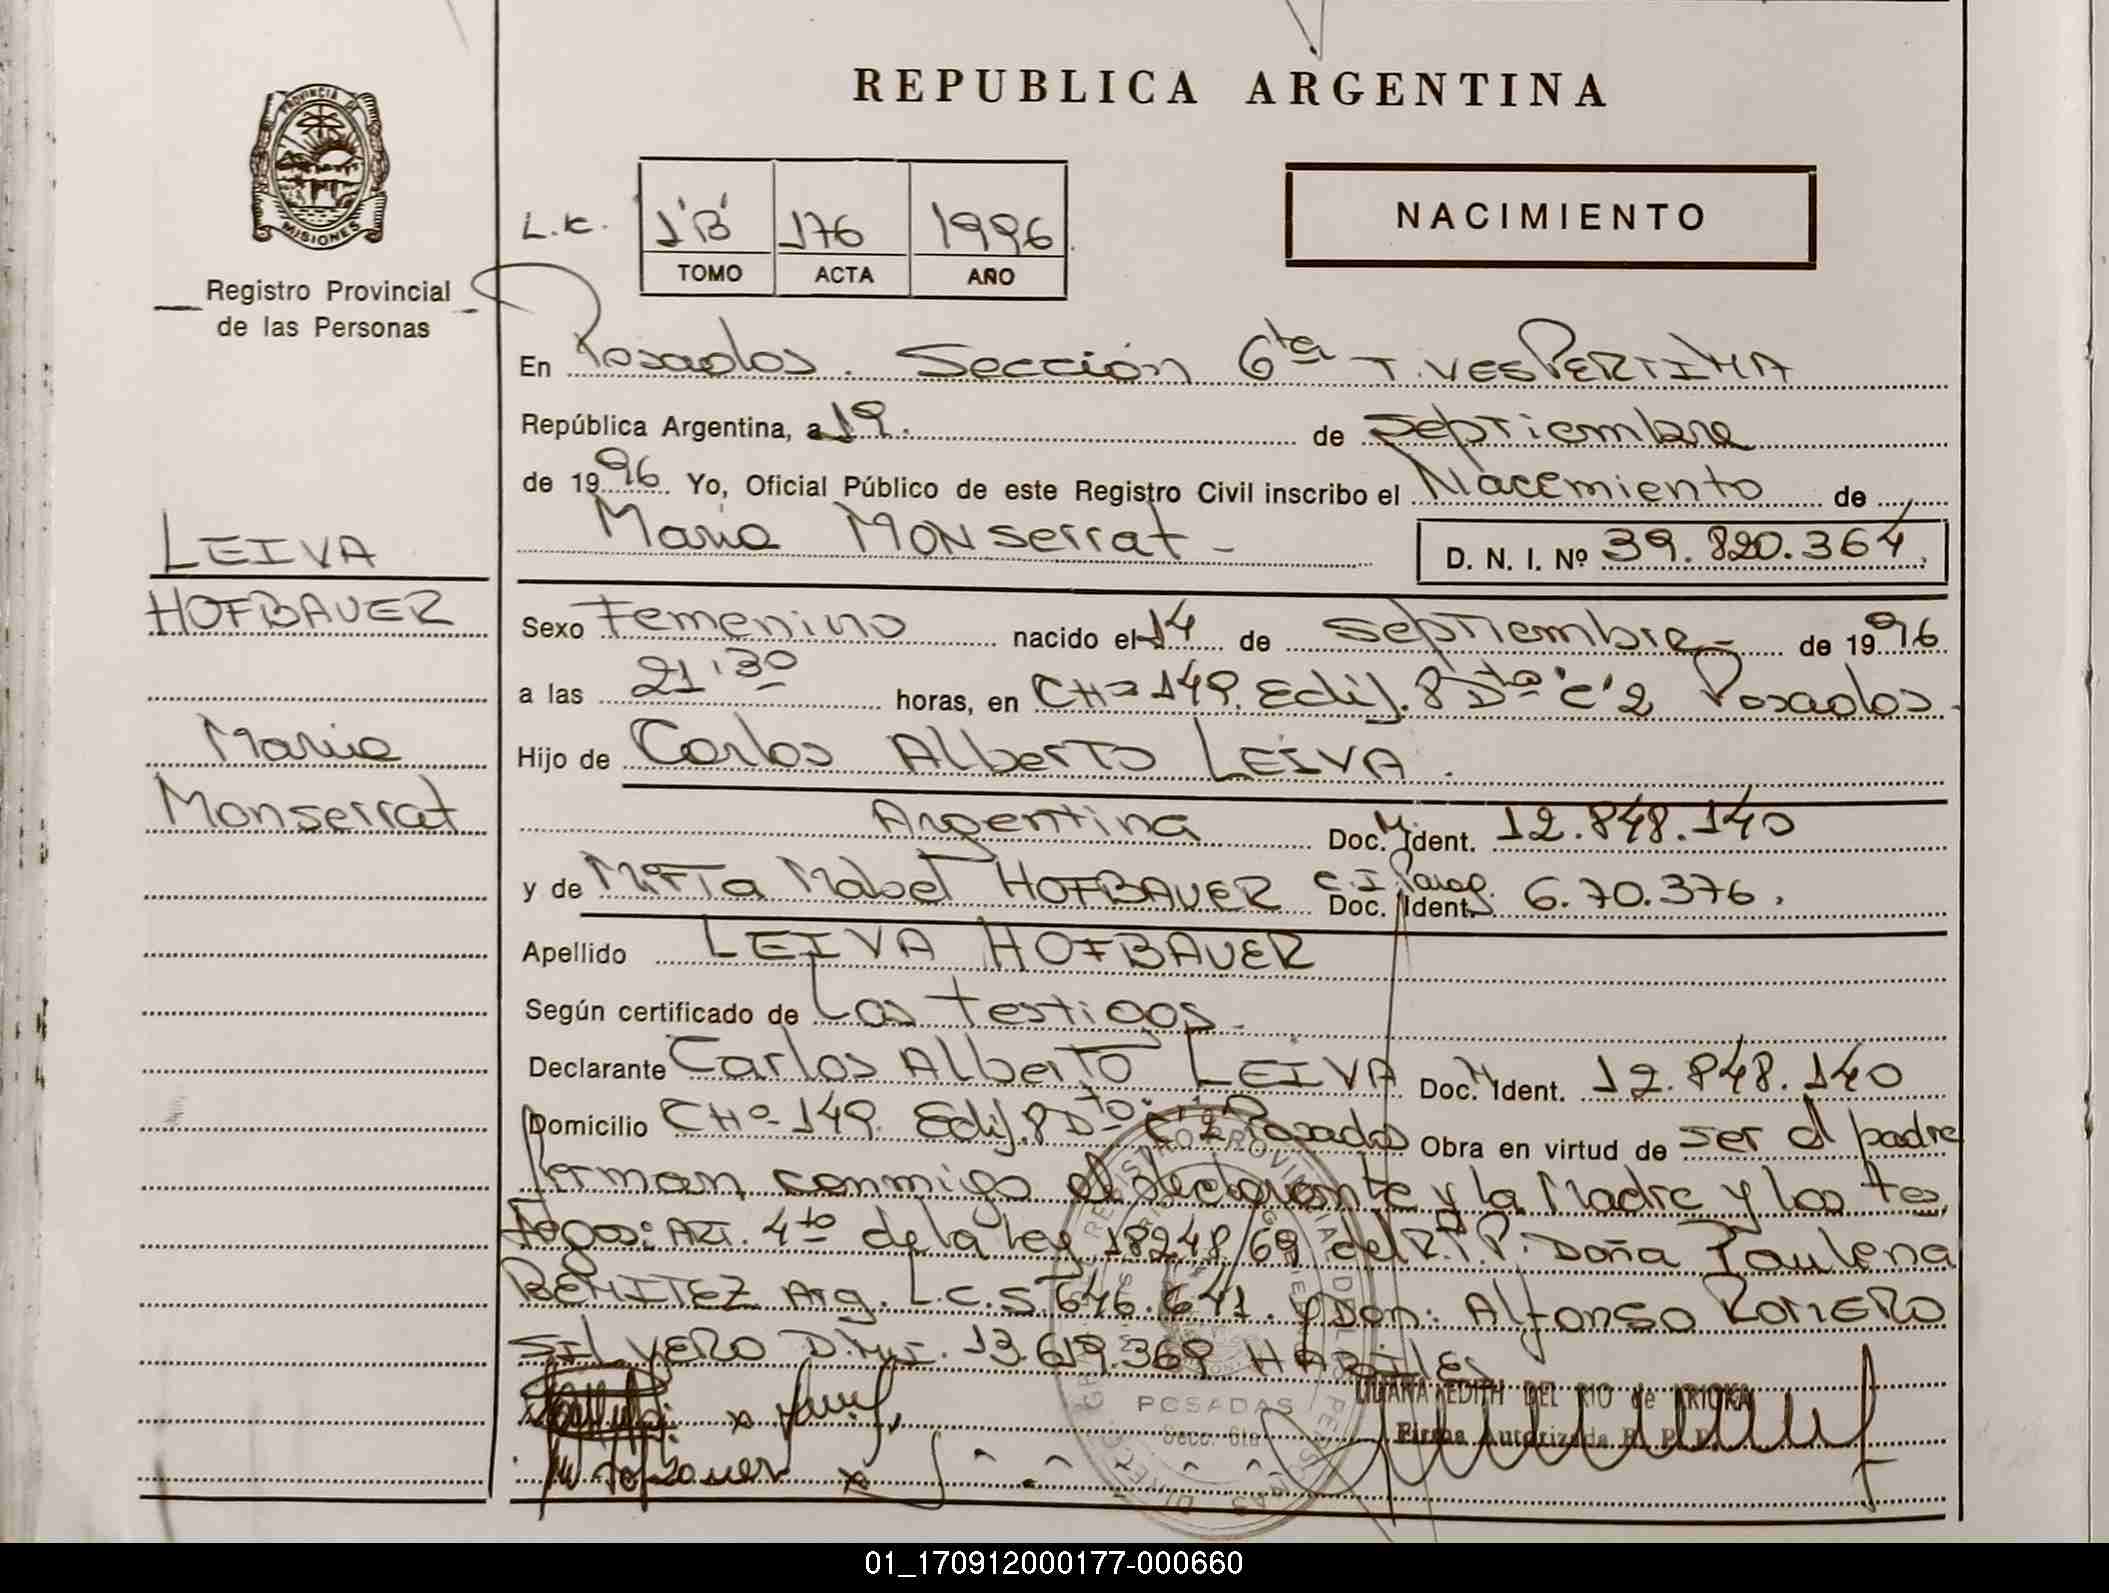 REPUBLICA ARGENTINA
PROVINCIA DE
MISIONES
Registro Provincial
de las Personas
L.C. 1'B' 176 1996
TOMO ACTA AÑO
NACIMIENTO
En Posadas. Sección 6ta T. VESPERTINA
República Argentina, a 19. de septiembre
de 1996 Yo, Oficial Público de este Registro Civil inscribo el Nacimiento de
Maria MONserrat - D. N. I. Nº 39.820.364
LEIVA
HOFBAUER
Maria
Monserrat
Sexo Femenino nacido el 14 de septiembre - de 1996
a las 21'30 horas, en CHª 149. Edif. 8 Dto 'C' 2 Posadas.
Hijo de Carlos Alberto LEIVA.
Argentina Doc. M. Ident. 12.848.140
y de Mirta Mabel HOFBAUER C.I. Parag. Doc. Ident. 6.70.376.
Apellido LEIVA HOFBAUER
Según certificado de Los Testigos.
Declarante Carlos Alberto LEIVA Doc. Ident. 12.848.140
Domicilio CHª 149. Edif. 8 Dto 'C' 2 Posadas Obra en virtud de ser el padre
firman conmigo el declarante y la Madre y los tes
tigos: Art. 4to de la ley 18248/69 del R.P.P. Doña Paulina
BENITEZ Arg. L.C. 5.646.641. y Don: Alfonso ROMERO
SILVERO D.N.I. 13.619.369 HABILES
POSADAS
Secc. 6ta
LILIANA EDITH DEL RIO de
Firma Autorizada R. P. P.
01_170912000177-000660